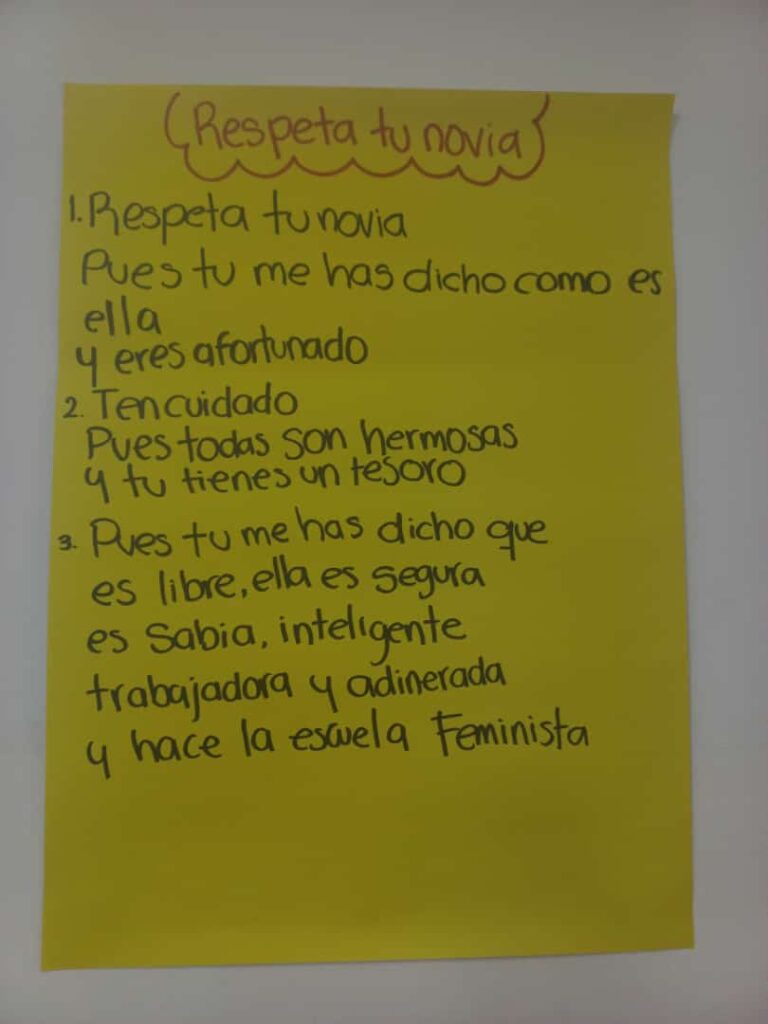 Respeta tu novia
1. Respeta tu novia
Pues tu me has dicho como es
ella
y eres afortunado
2. Ten cuidado
Pues todas son hermosas
y tu tienes un tesoro
3. Pues tu me has dicho que
es libre, ella es segura
es Sabia, inteligente
trabajadora y adinerada
y hace la escuela Feminista